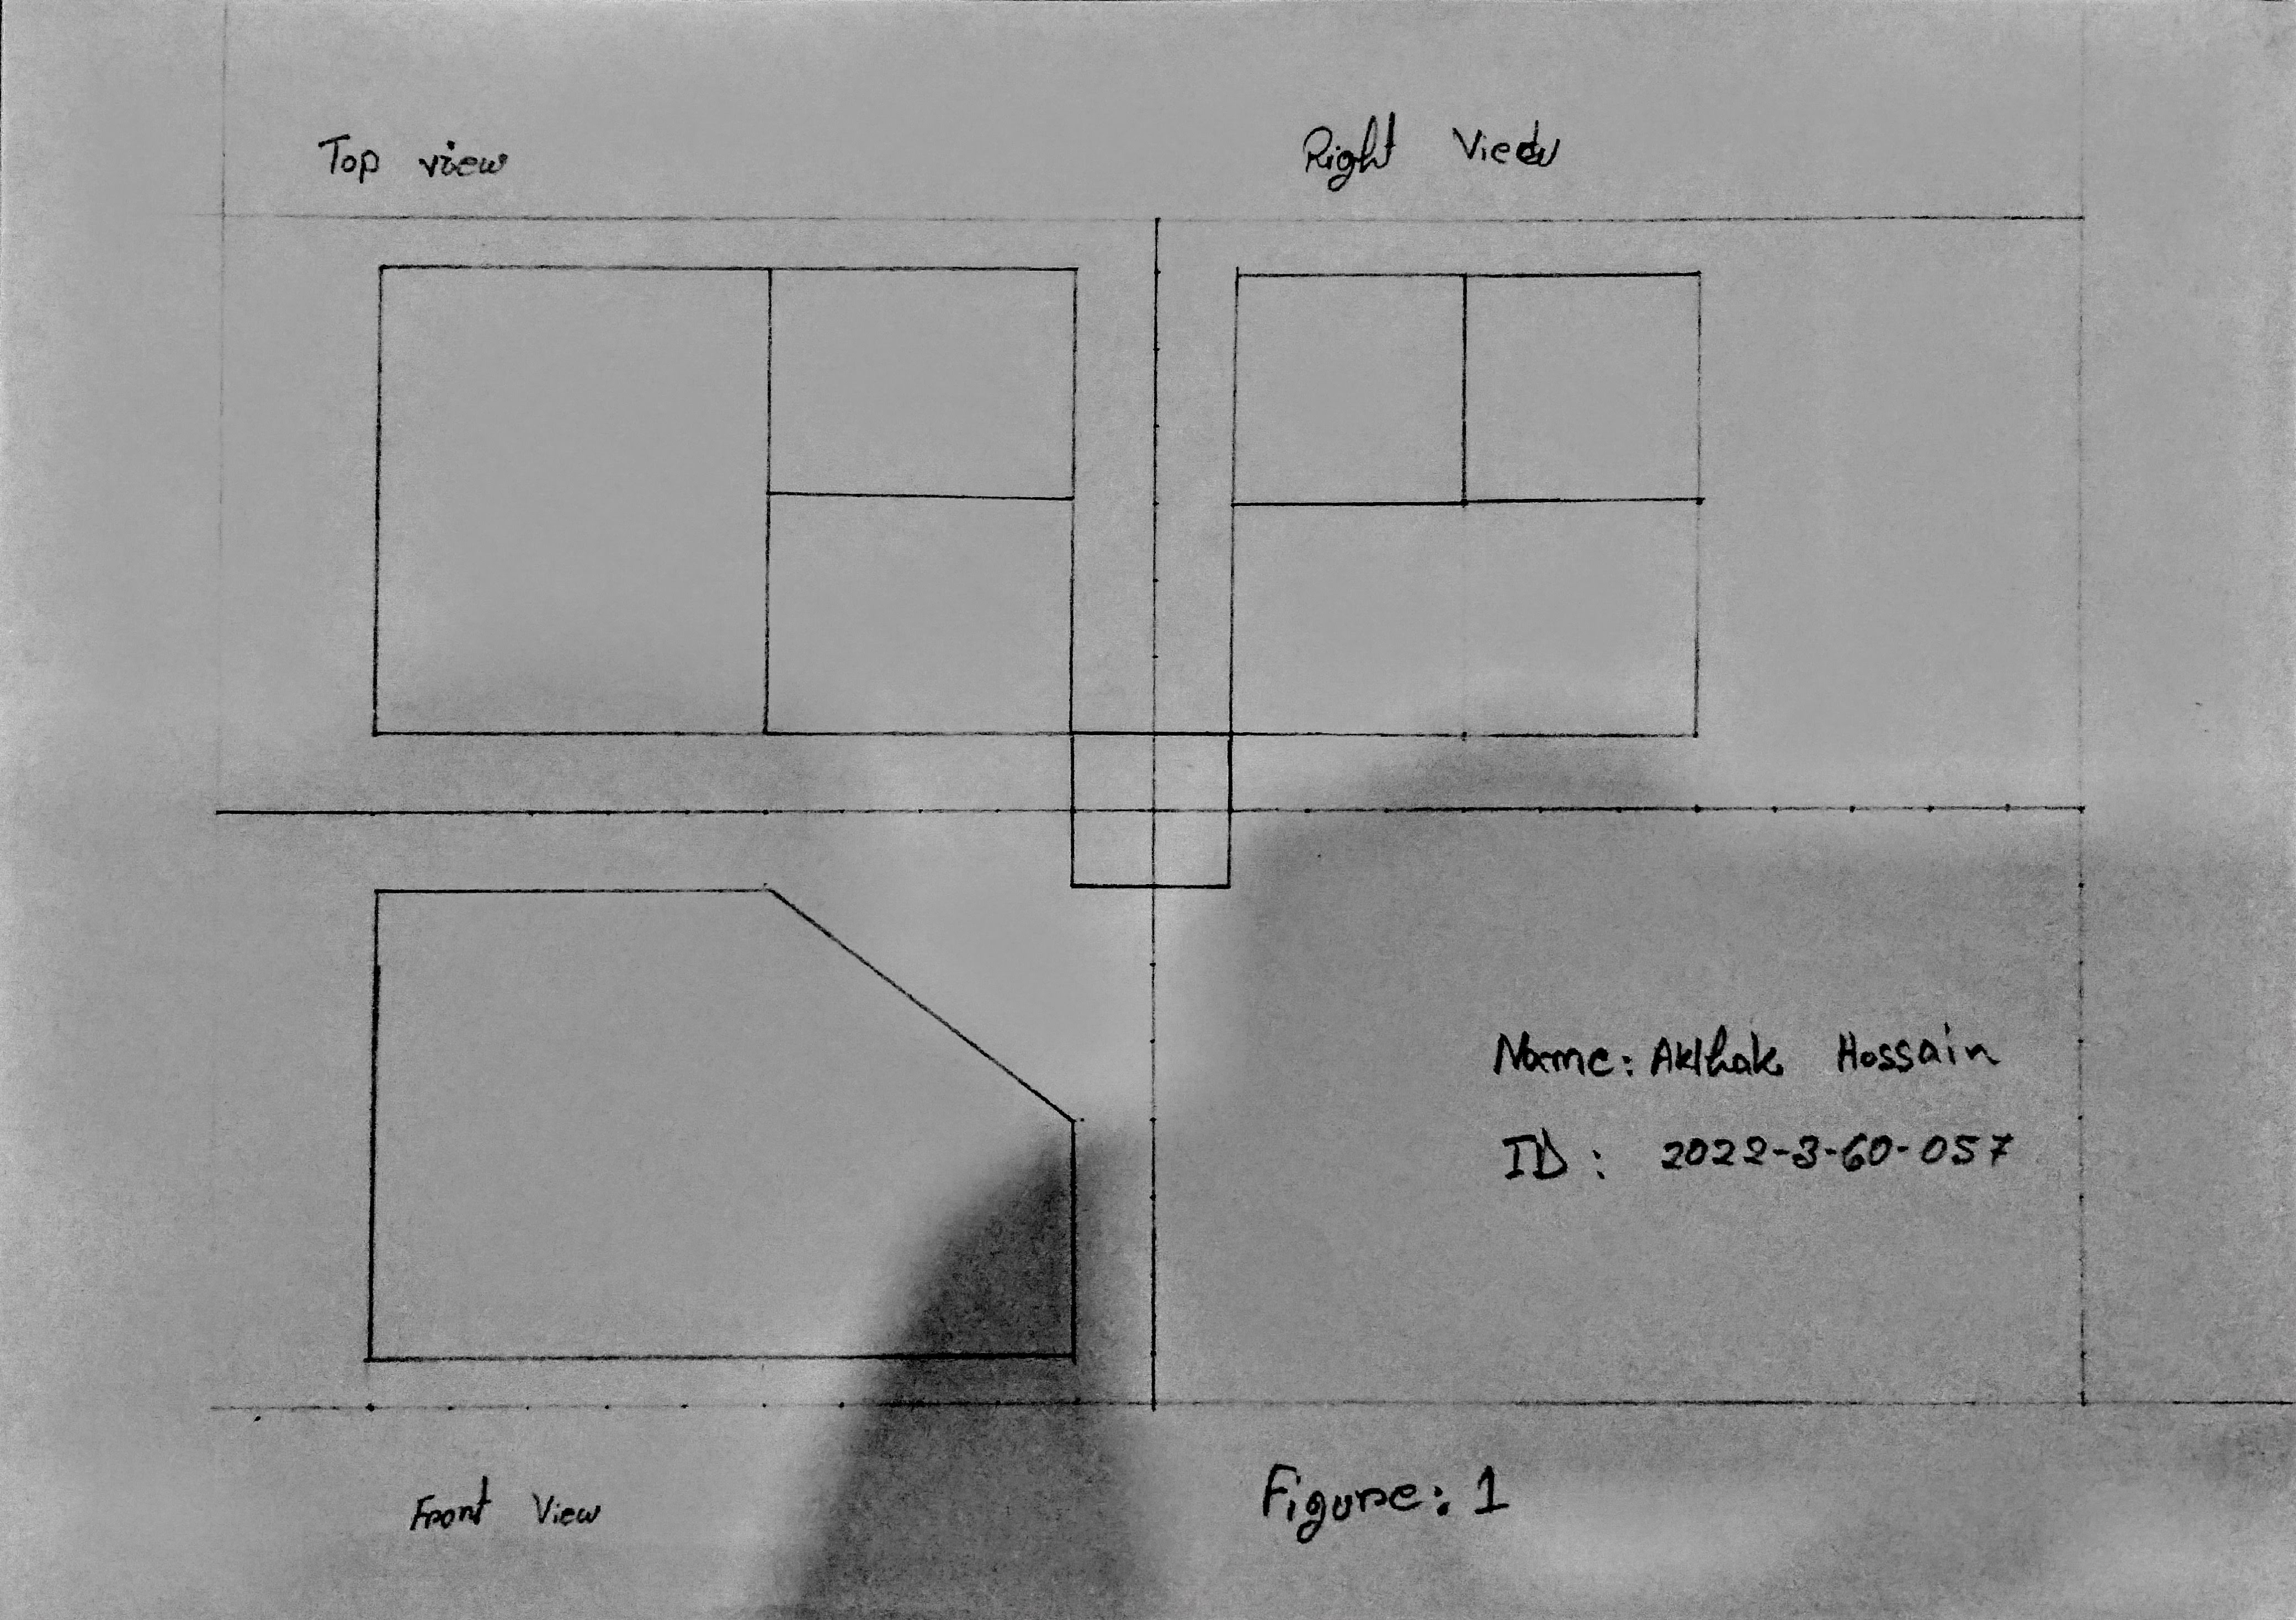 Top view
Right View
Name: Akhak Hossain
ID: 2022-3-60-057
Front View
Figure: 1